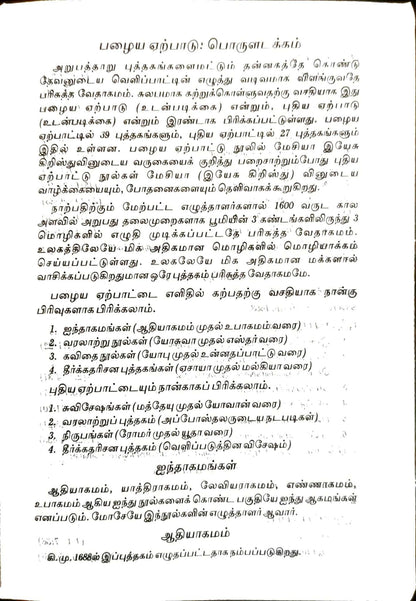 பழைய ஏற்பாடு: பொருளடக்கம்
அறுபத்தாறு புத்தகங்களைமட்டும் தன்னகத்தே கொண்டு
தேவனுடைய வெளிப்பாட்டின் எழுத்து வடிவமாக விளங்குவதே
பரிசுத்த வேதாகமம். சுலபமாக கற்றுக்கொள்ளுவதற்கு வசதியாக இது
பழைய ஏற்பாடு (உடன்படிக்கை) என்றும், புதிய ஏற்பாடு
(உடன்படிக்கை) என்றும் இரண்டாக பிரிக்கப்பட்டுள்ளது. பழைய
ஏற்பாட்டில் 39 புத்தகங்களும், புதிய ஏற்பாட்டில் 27 புத்தகங்களும்
இதில் உள்ளன. பழைய ஏற்பாட்டு நூலில் மேசியா இயேசு
கிறிஸ்துவினுடைய வருகையைக் குறித்து பறைசாற்றும்போது புதிய
ஏற்பாட்டு நூல்கள் மேசியா (இயேசு கிறிஸ்து) வினுடைய
வாழ்க்கையையும், போதனைகளையும் தெளிவாகக் கூறுகிறது.
நாற்பதிற்கும் மேற்பட்ட எழுத்தாளர்களால் 1600 வருட கால
அளவில் அறுபது தலைமுறைகளாக பூமியின் 3 கண்டங்களிலிருந்து 3
மொழிகளில் எழுதி முடிக்கப்பட்டதே பரிசுத்த வேதாகமம்.
உலகத்திலேயே மிக அதிகமான மொழிகளில் மொழியாக்கம்
செய்யப்பட்டுள்ளது. உலகலேயே மிக அதிகமான மக்களால்
வாசிக்கப்படுகிறதுமான ஒரே புத்தகம் பரிசுத்த வேதாகமமே.
பழைய ஏற்பாட்டை எளிதில் கற்பதற்கு வசதியாக நான்கு
பிரிவுகளாக பிரிக்கலாம்.
1. ஐந்தாகமங்கள் (ஆதியாகமம் முதல் உபாகமம் வரை)
2. வரலாற்று நூல்கள் (யோசுவா முதல் எஸ்தர் வரை)
3. கவிதை நூல்கள் (யோபு முதல் உன்னதப்பாட்டு வரை)
4. தீர்க்கதரிசன புத்தகங்கள் (ஏசாயா முதல் மல்கியா வரை)
புதிய ஏற்பாட்டையும் நான்காகப் பிரிக்கலாம்.
1. சுவிசேஷங்கள் (மத்தேயு முதல் யோவான் வரை)
2. வரலாற்றுப் புத்தகம் (அப்போஸ்தலருடைய நடபடிகள்)
3. நிருபங்கள் (ரோமர் முதல் யூதா வரை)
4. தீர்க்கதரிசன புத்தகம் (வெளிப்படுத்தின விசேஷம்)
ஐந்தாகமங்கள்
ஆதியாகமம், யாத்திராகமம், லேவியராகமம், எண்ணாகமம்,
உபாகமம் ஆகிய ஐந்து நூல்களைக் கொண்ட பகுதியே ஐந்து ஆகமங்கள்
எனப்படும். மோசேயே இந்நூல்களின் எழுத்தாளர் ஆவார்.
ஆதியாகமம்
கி.மு. 1688ல் இப்புத்தகம் எழுதப்பட்டதாக நம்பப்படுகிறது.